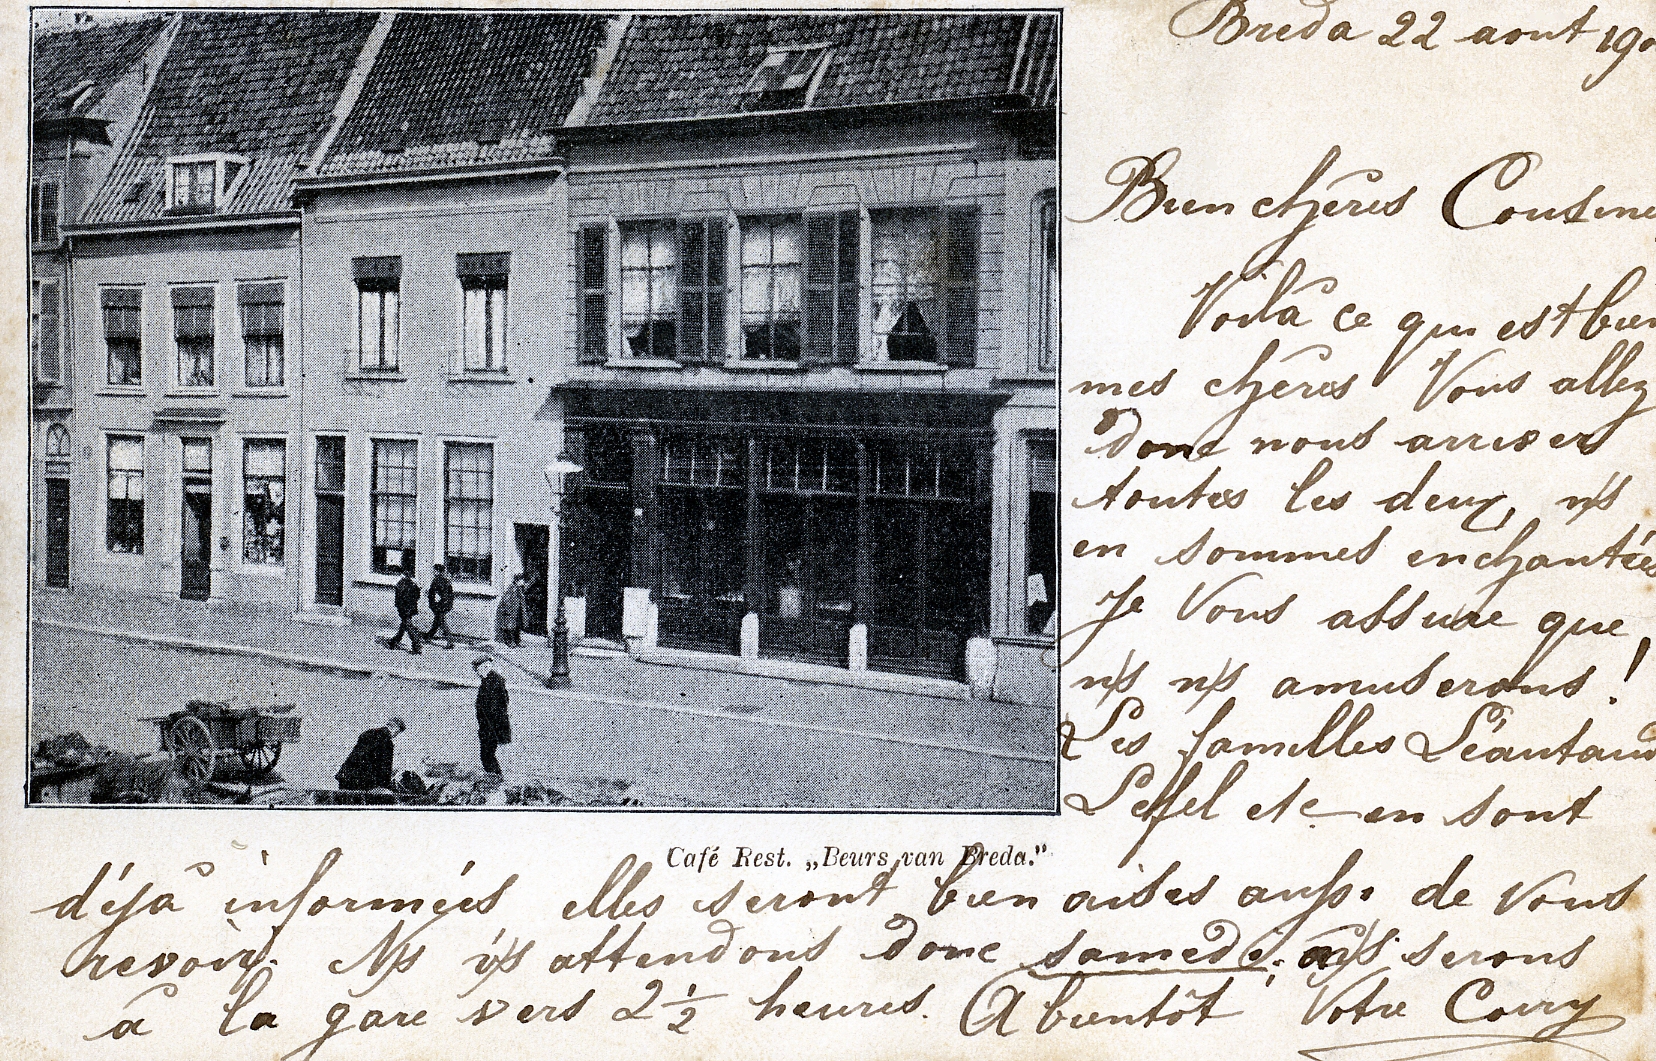 Breda 22 aout 190
Bien chères Cousine
Voilà ce qui est bien
mes chères Vous allez
donc nous arriver
toutes les deux, ns
en sommes enchantées
Je Vous assure que
ns ns amuserons!
Les familles Léautaud
etc en sont
Café Rest. „Beurs van Breda.”
déjà informées elles seront bien aises aussi de Vous
revoir. Ns vs attendons donc samedi. ns serons
à la gare vers 2½ heures. A bientôt Votre Corry